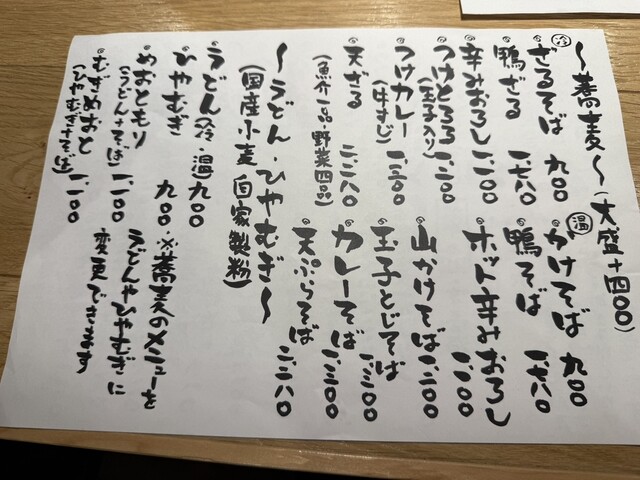 〜蕎麦〜(大盛+四〇〇)
冷
ざるそば 九〇〇
鴨ざる 一、七八〇
辛みおろし 一、一〇〇
つけとろろ 一、二〇〇
(玉子入り)
つけカレー 一、三〇〇
(牛すじ)
天ざる 二、二八〇
(魚介一品・野菜四品)
温
かけそば 九〇〇
鴨そば 一、七八〇
ホット辛みおろし
一、一〇〇
山かけそば 一、二〇〇
玉子とじそば
一、二〇〇
カレーそば 一、三〇〇
天ぷらそば 二、二八〇
〜うどん・ひやむぎ〜
(国産小麦 自家製粉)
うどん(冷・温) 九〇〇
ひやむぎ 九〇〇
めおともり
(うどん+そば) 一、一〇〇
むぎめおと 一、一〇〇
(ひやむぎ+そば)
・※蕎麦のメニューを
うどんやひやむぎに
変更できます